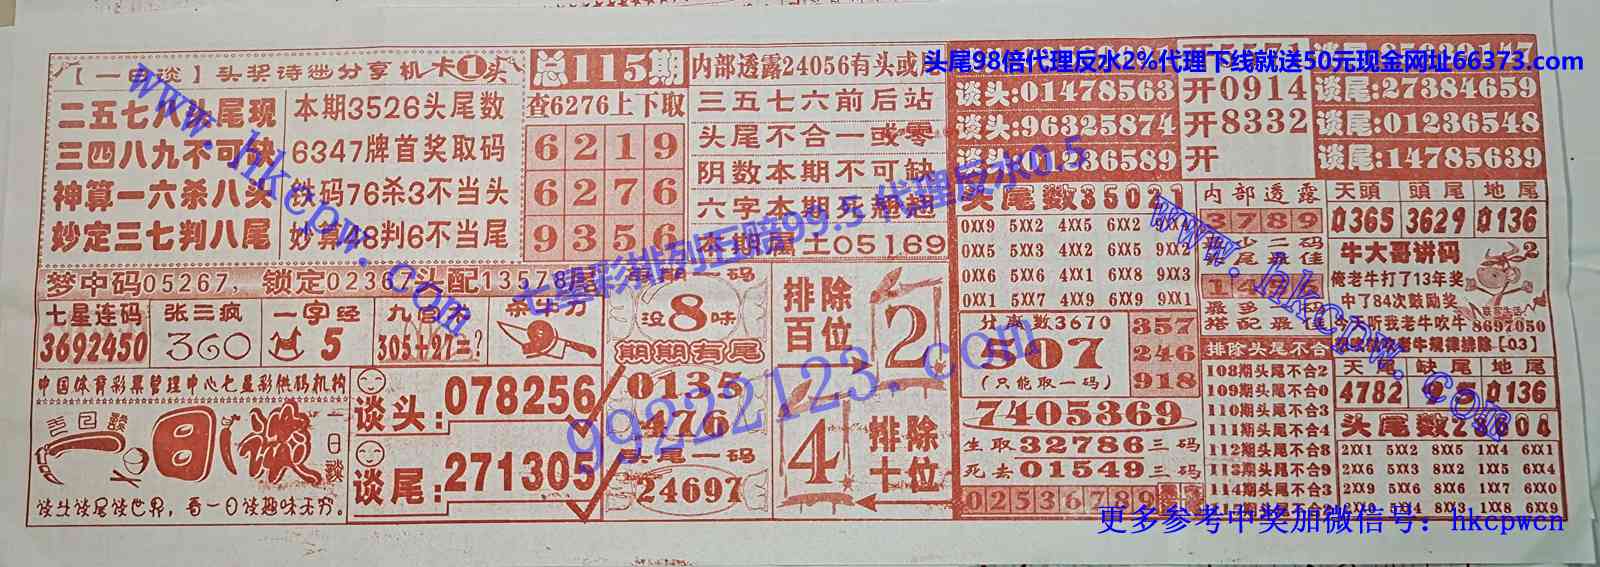 头尾98倍代理反水2%代理下线就送50元现金网址66373.com
【一白谈】头奖诗谜分享机卡①头
二五七八头尾现
三四八九不可缺
神算一六杀八头
妙定三七判八尾
本期3526头尾数
6347牌首奖取码
铁码76杀3不当头
妙算48判6不当尾
总115期
查6276上下取
6219
6276
9356
内部透露24056有头或尾
三五七六前后站
头尾不合一或零
阴数本期不可缺
六字本期死翘翘
本期属土05169
谈头:01478563
开0914
谈尾:27384659
谈头:96325874
开8332
谈尾:01236548
谈头:01236589
开
谈尾:14785639
梦中码05267,锁定0236头配13578尾
七星连码
3692450
张三疯
360
一字经
5
305+27=?
没8味
期期有尾
0135
476
头尾一码
24697
排除百位
2
4
排除十位
中国体育彩票管理中心七星彩供码机构
一日谈
日谈
谈头谈尾谈世界,看一日谈趣味无穷.
谈头:
078256
谈尾:
271305
头尾数35021
0XX9 5XX2 4XX5 6XX2
0XX5 5XX3 4XX2
0XX6 5XX6 4XX1 6XX8 9XX3
0XX1 5XX7 4XX9 6XX9 9XX1
分离数3670
507
(只能取一码)
357
246
918
7405369
生取32786三码
死去01549三码
内部透露
3789
最多一码
搭配最佳
排除头尾不合
108期头尾不合2
109期头尾不合0
110期头尾不合3
111期头尾不合4
112期头尾不合8
113期头尾不合9
114期头尾不合3
天頭 頭尾 地尾
0365 3629 0136
牛大哥讲码
俺老牛打了13年奖
中了84次鼓励奖
今天听我老牛吹牛
8697050
天尾 缺尾 地尾
4782
0136
头尾数23604
2XX1 5XX2 8XX5 1XX4 6XX1
2XX6 5XX3 8XX2 1XX5 6XX4
2XX9 5XX6 8XX6 1XX7 6XX0
www.hkcpw.com
七星彩排列五赔99.5 代理反水0.5
99222123.com
www.hkcpw.com
更多参考中奖加微信号：hkcpwcn